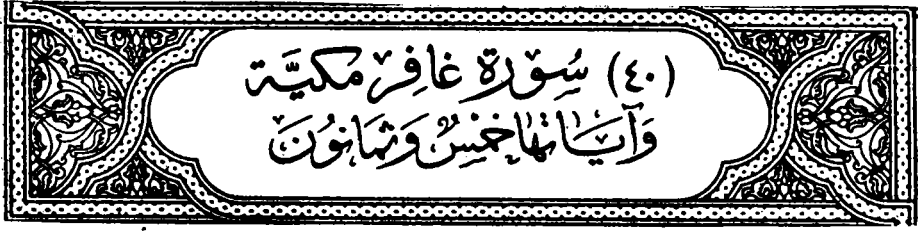 (٤٠) سُورَةُ غَافِر مَكيَّة
وَآيَاتُهَا خَمْسٌ وَثَمَانُونَ